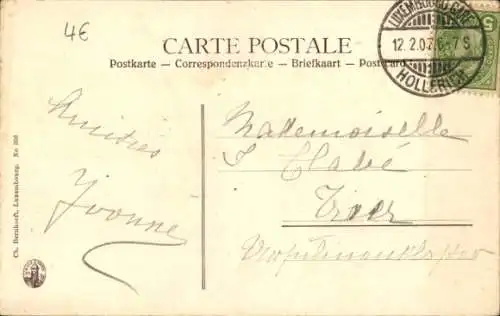 4€
CARTE POSTALE
Postkarte – Correspondenzkarte – Briefkaart – Post card
LUXEMBOURG GARE
12.2.07. 6-7 S
HOLLERICH
5
Amitiés
Yvonne
Mademoiselle
Trier
Ch. Bernhoeft, Luxembourg. No